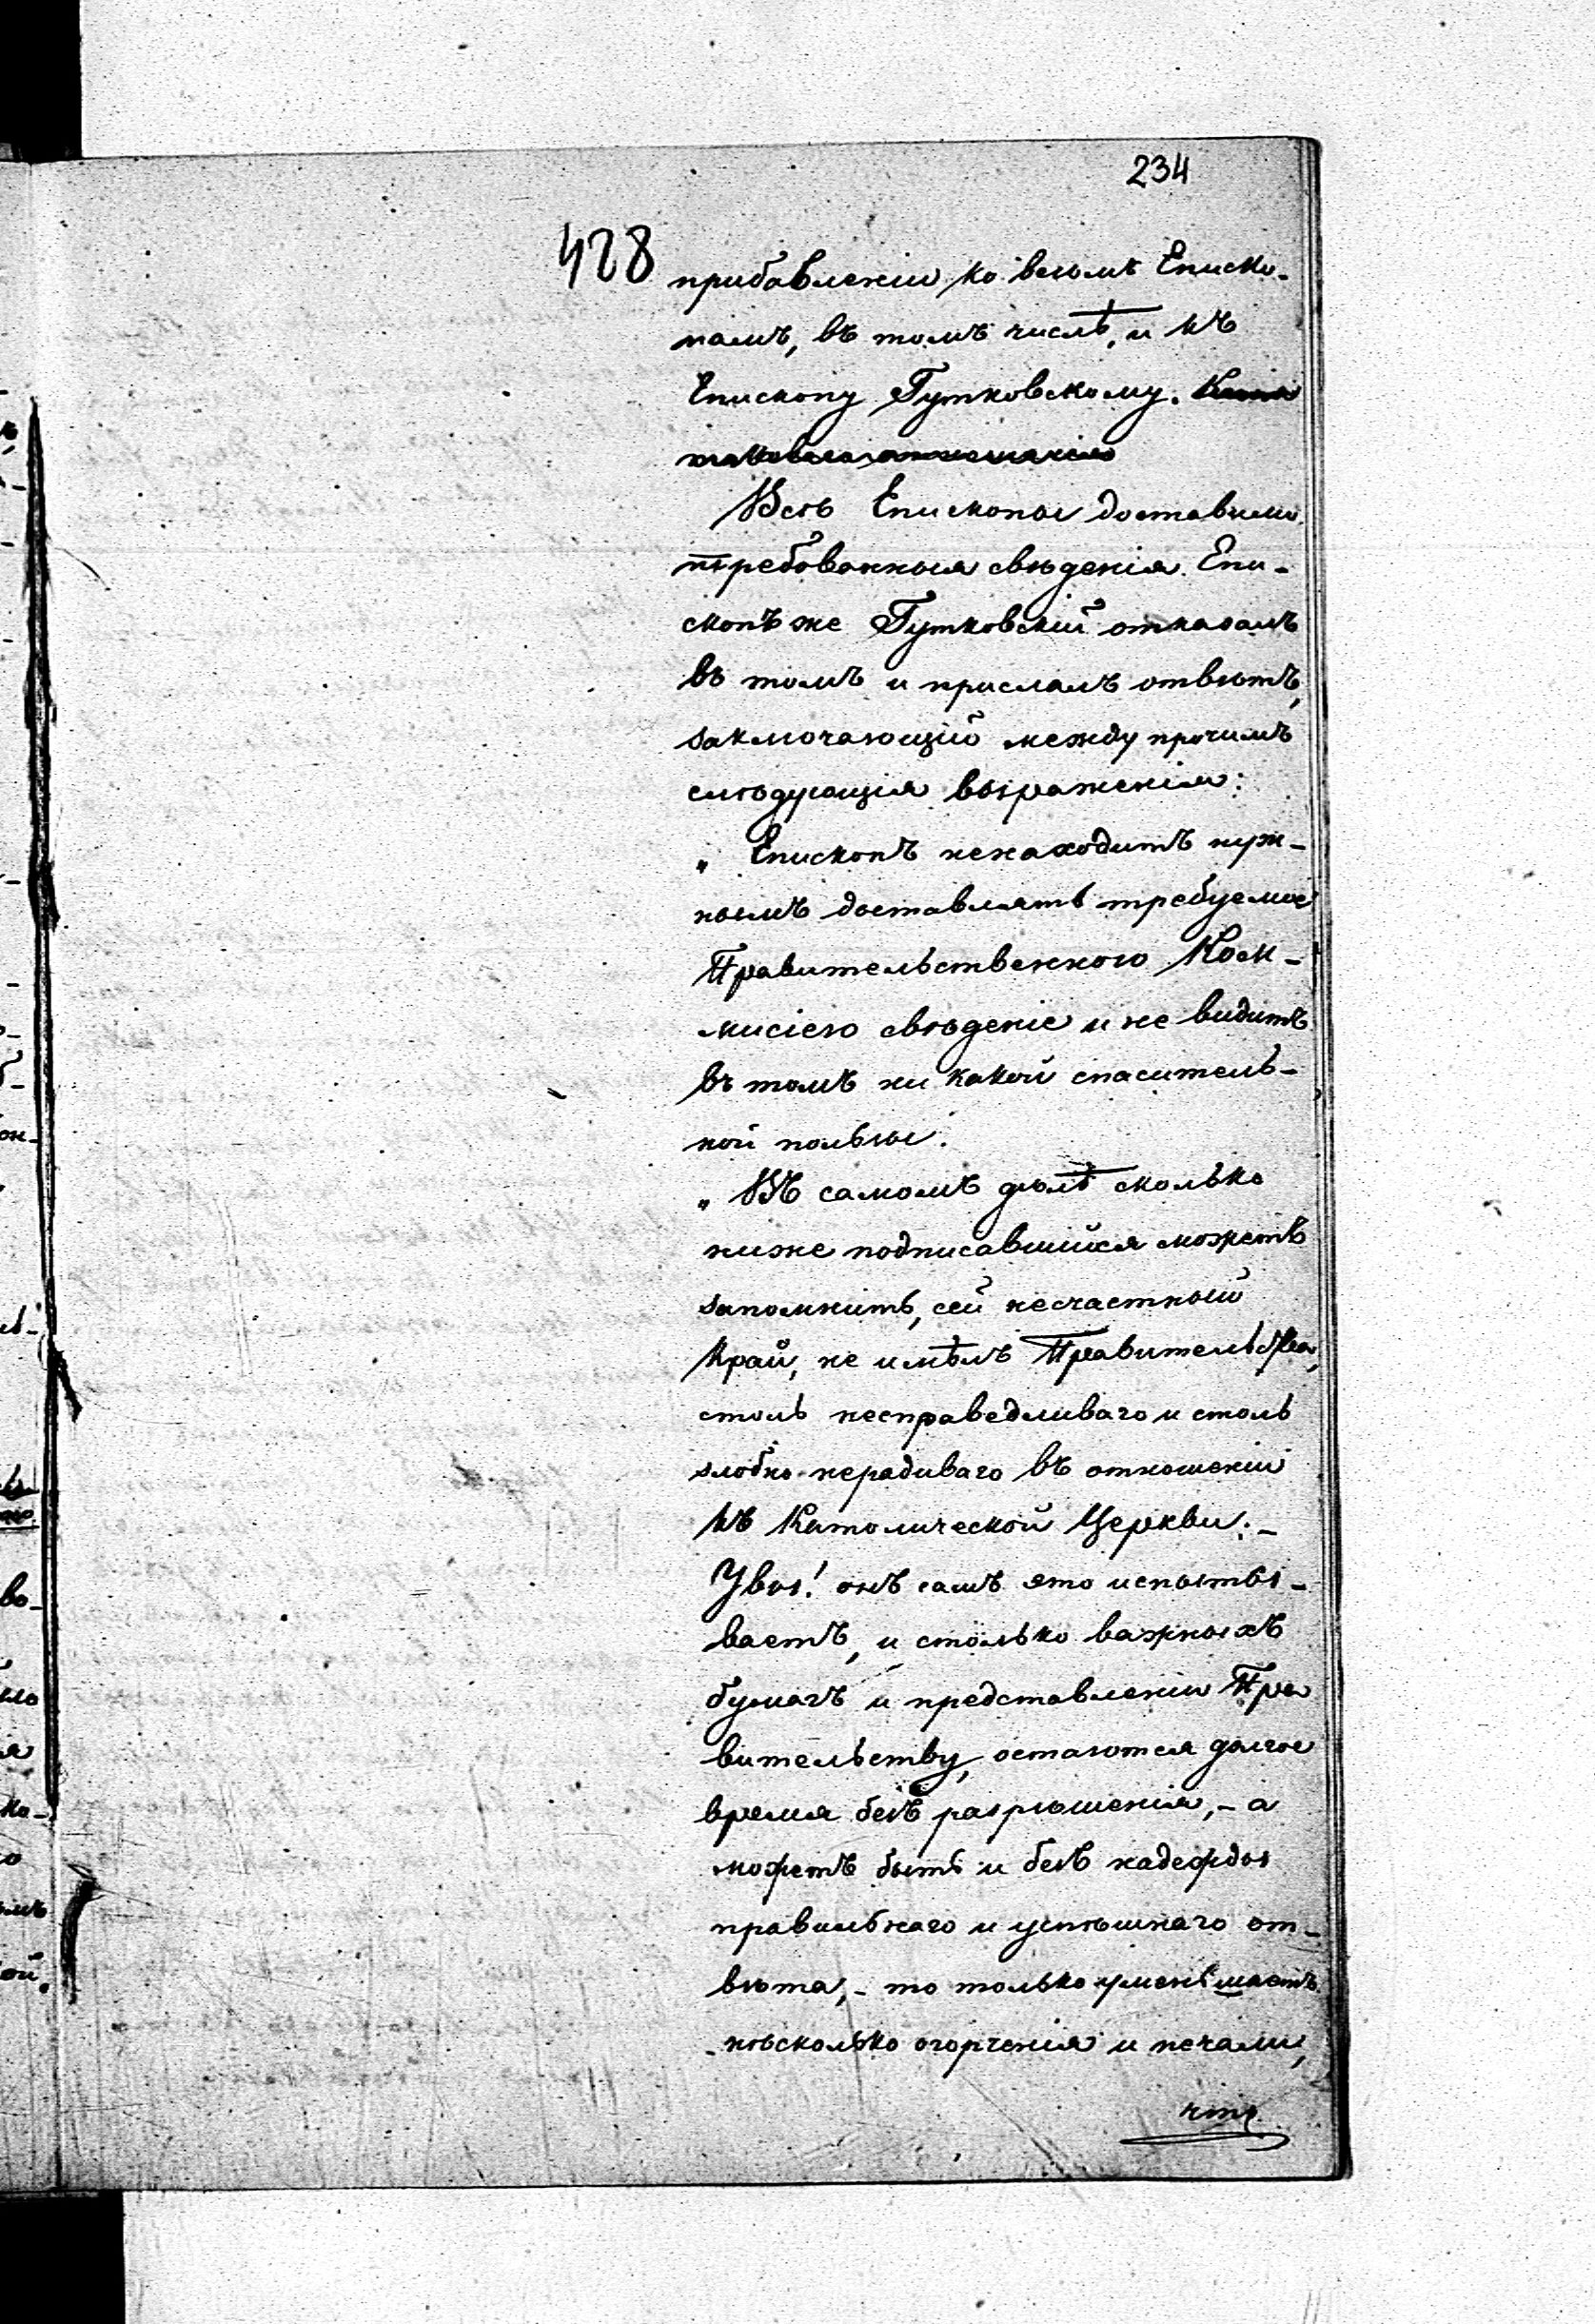 234
428
прибавленiи ко всѣмъ Еписко-
памъ, въ томъ числѣ, и къ
Епископу Гутковскому.
Всѣ Епископы доставили
требованныя свѣденiя. Епи-
скопъ же Гутковскiй отказалъ
въ томъ и прислалъ отвѣтъ,
заключающiй между прочимъ
слѣдующiя выраженiя:
„ Епископъ ненаходитъ нуж-
нымъ доставлять требуемое
Правительственною Ком-
мисiею свѣденiе и не видитъ
въ томъ ни какой спаситель-
ной пользы.
„ Въ самомъ дѣлѣ сколько
ниже подписавшийся можетъ
запомнить, сей несчастный
Край, не имѣлъ Правительства,
столь несправедливаго и столь
злобно-нерадиваго въ отношенiи
къ Католической Церкви. –
Увы! онъ самъ это испыты-
ваетъ, и столько важныхъ
бумагъ и представленiи Пра
вительству, остаются долгое
время безъ разрѣшенiя, – а
можетъ быть и безъ надежды
правильнаго и успѣшнаго от-
вѣта, – то только уменьшаетъ
нѣсколько огорченiя и печали,
что